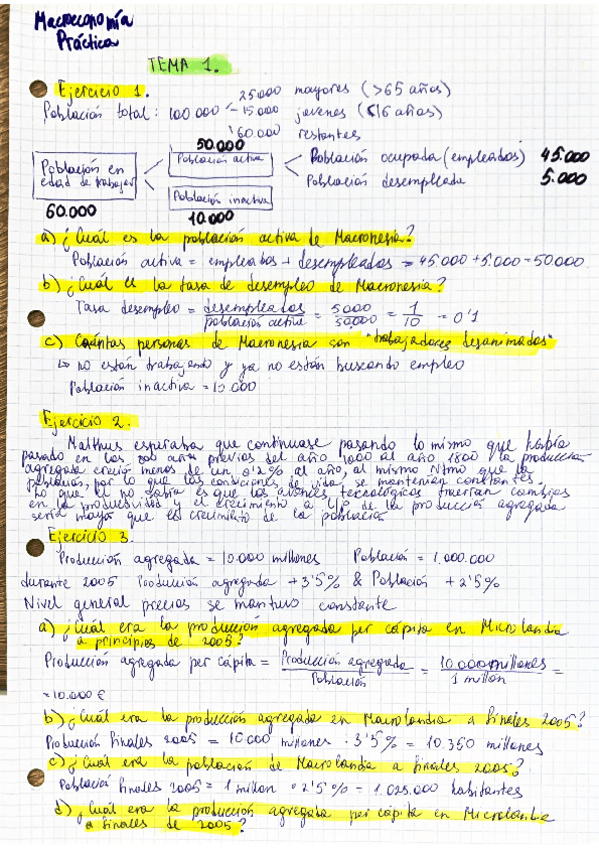 Macroeconomía
Práctica
TEMA 1.
Ejercicio 1.
25000 mayores (>65 años)
Población total: 100000 - 15000 jovenes (<16 años)
60.000 restantes
50.000
Población en edad de trabajar
Población activa
Población ocupada (empleados) 45.000
Población desempleada 5.000
Población inactiva
60.000
10.000
a) ¿Cuál es la población activa de Macronesia?
Población activa = empleados + desempleados = 45000 + 5.000 = 50000
b) ¿Cuál es la tasa de desempleo de Macronesia?
Tasa desempleo = desempleados / población activa = 5000 / 50,000 = 1 / 10 = 0'1
c) Cuántas personas de Macronesia son "trabajadores desanimados"
↳ no están trabajando y ya no están buscando empleo
Población inactiva = 10.000
Ejercicio 2.
Malthus esperaba que continuase pasando lo mismo que había
pasado en los 800 años previos del año 1000 al año 1800 la producción
agregada creció menos de un 0'2% al año, al mismo ritmo que la
población, por lo que las condiciones de vida se mantenían constantes.
Lo que él no sabía es que los avances tecnológicos traerían cambios
en la productividad y el crecimiento a l/p de la producción agregada
sería mayor que el crecimiento de la población
Ejercicio 3.
Producción agregada = 10.000 millones Población = 1.000.000
durante 2005 Producción agregada +3'5% & Población +2'5%
Nivel general precios se mantuvo constante
a) ¿Cuál era la producción agregada per cápita en Microlandia
a principios de 2005?
Producción agregada per cápita = Producción agregada / Población = 10.000 millones / 1 millon =
= 10.000 €
b) ¿Cuál era la producción agregada en Macrolandia a finales 2005?
Producción finales 2005 = 10000 millones · 3'5% = 10.350 millones
c) ¿Cuál era la población de Macrolandia a finales 2005?
Población finales 2005 = 1 millon · 2'5% = 1.025.000 habitantes
d) ¿Cuál era la producción agregada per cápita en Microlandia
a finales de 2005?